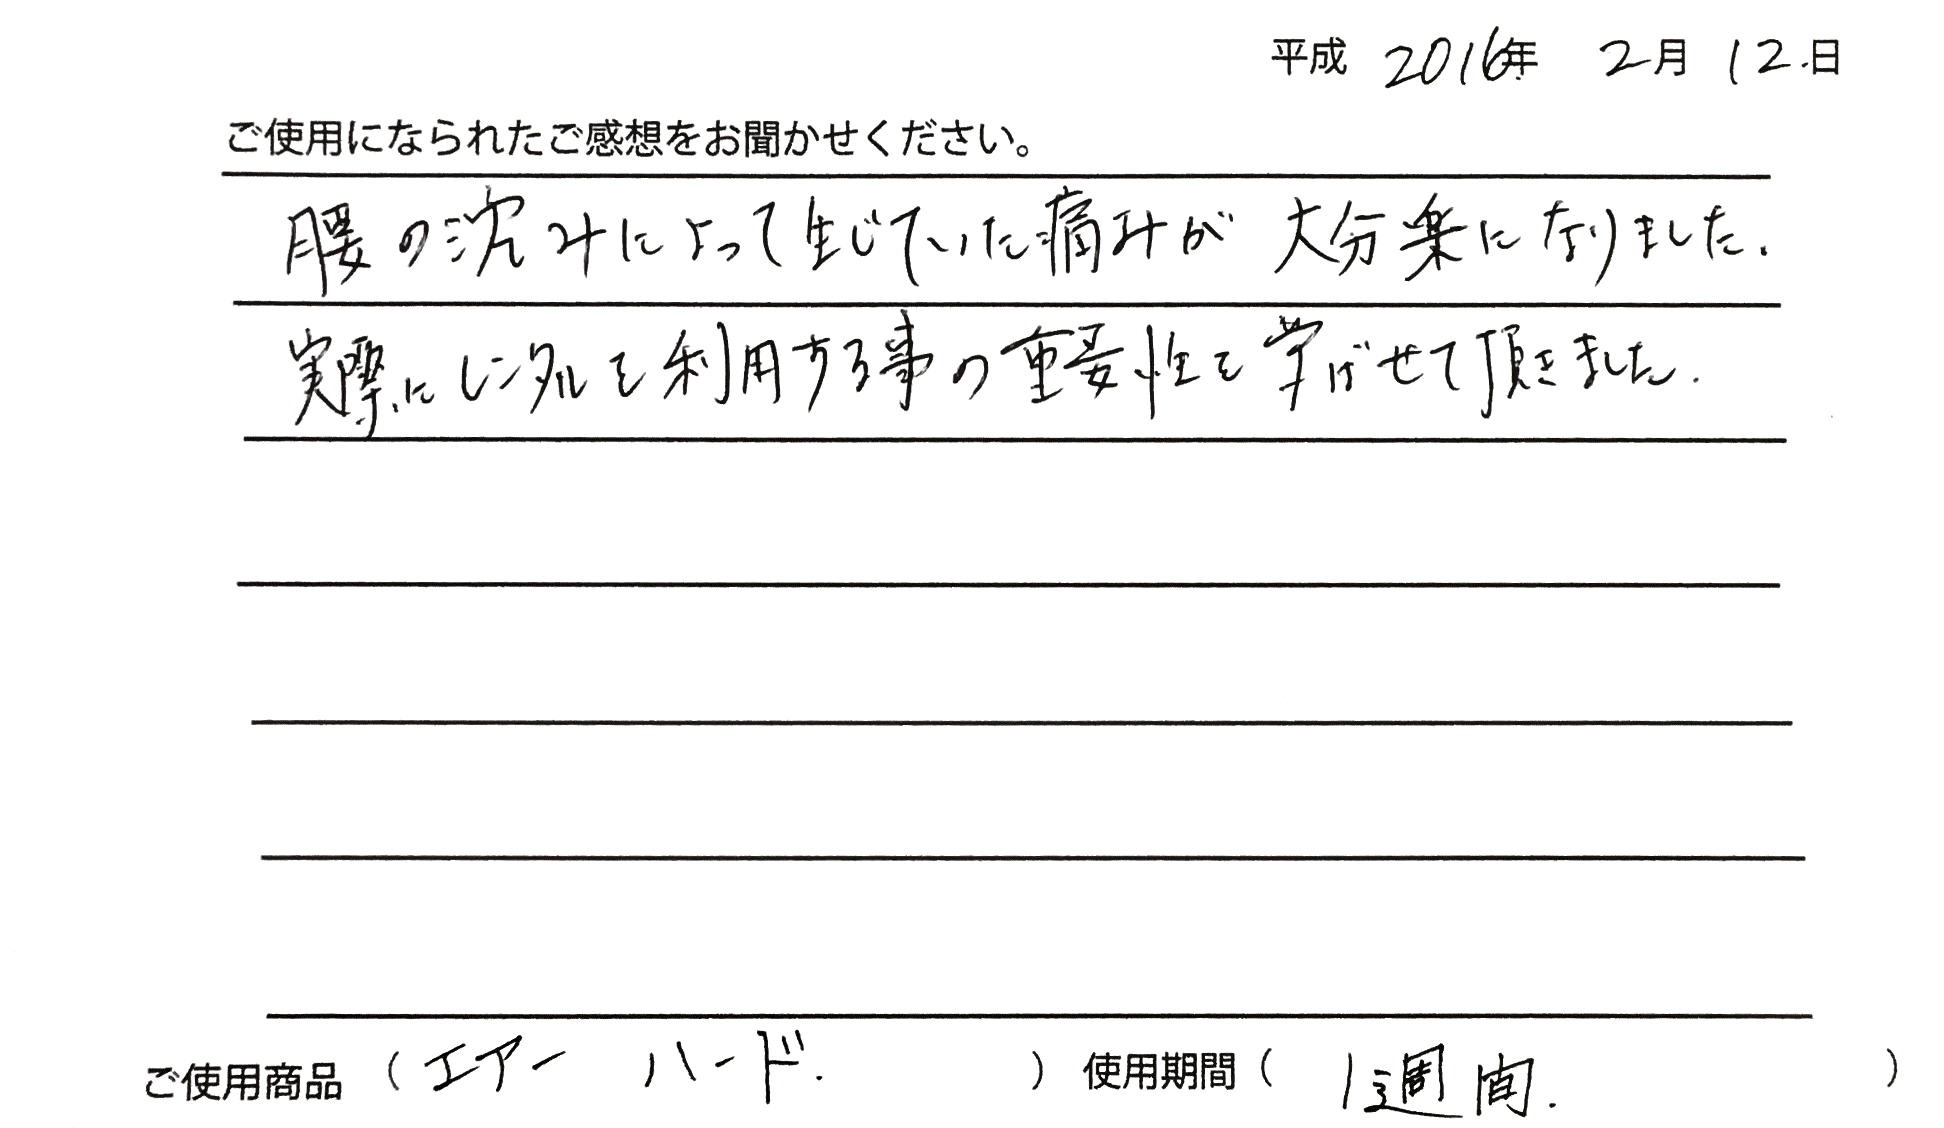 平成 2016年 2月 12日
ご使用になられたご感想をお聞かせください。
腰の沈みによって生じていた痛みが 大分楽になりました.
実際にレンタルを利用する事の重要性を学ばせて頂きました.
ご使用商品 ( エアー ハード. ) 使用期間 ( 1週間. )